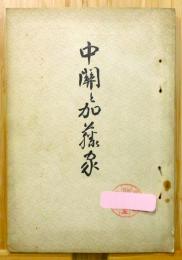 中関と加藤家